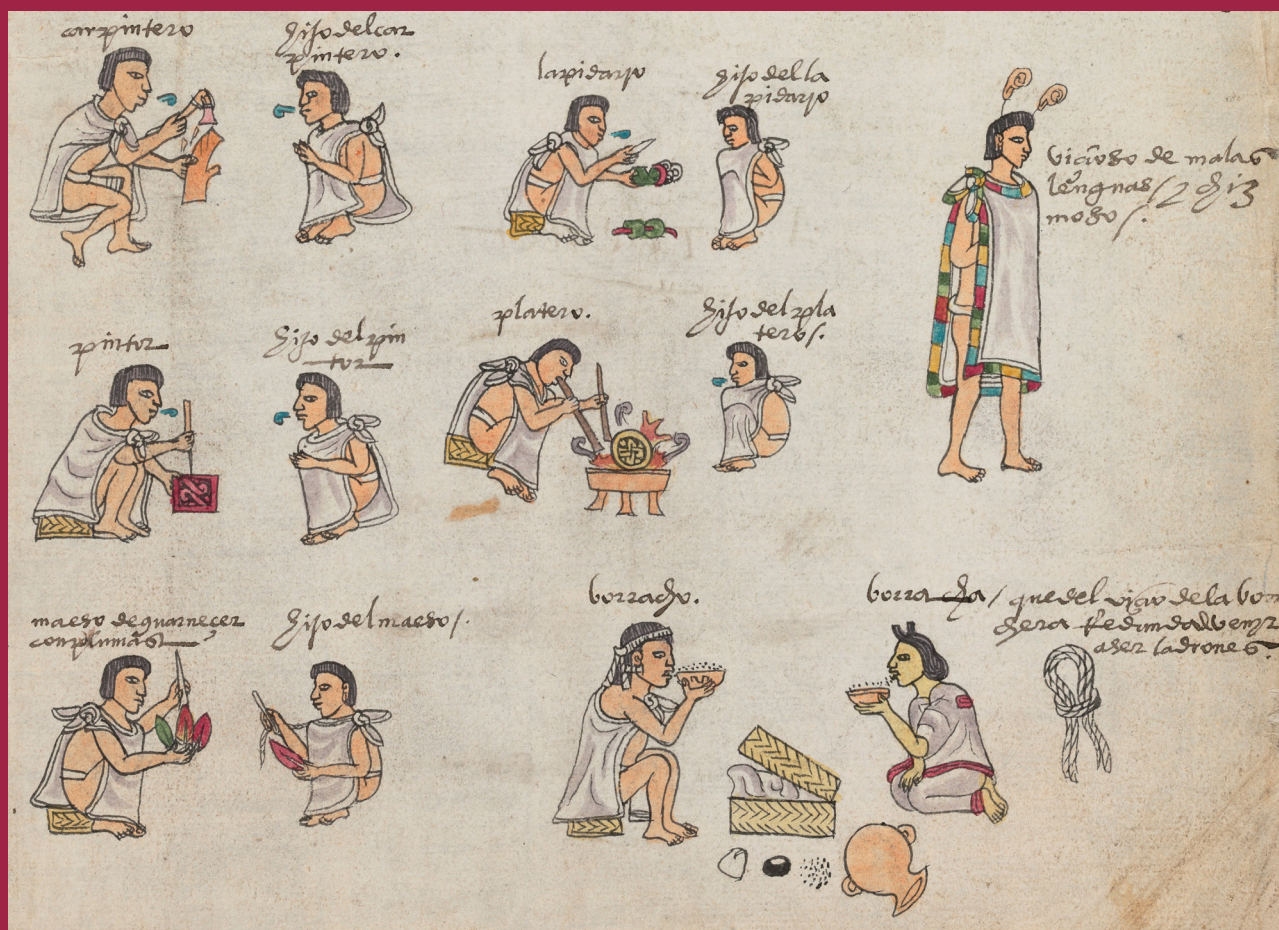 carpintero
hijo del car
pintero.
lapidaryo
hijo del la
pidaryo
vicioso de malas
lenguas / y chiz
moso /.
pintor
hijo del pin
tor
platero.
hijo del pla
tero /.
maeso de guarnecer
con plumas
hijo del maeso /.
borracho.
borracha / que del vicio de la borr
chera Redunda venyr
a ser ladrones.